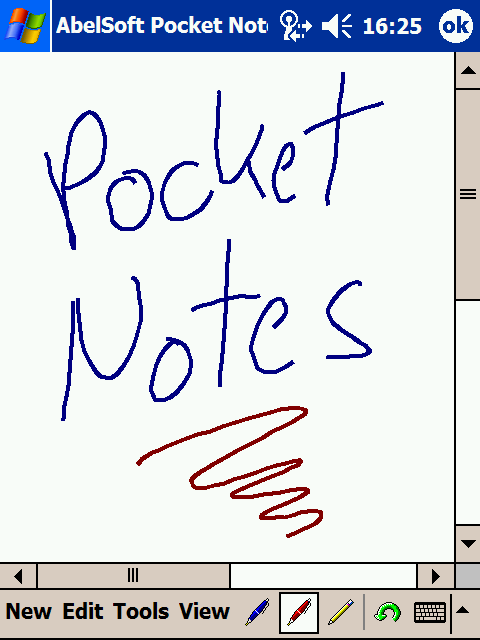 AbelSoft Pocket Not
16:25
ok
Pocket
Notes
New Edit Tools View